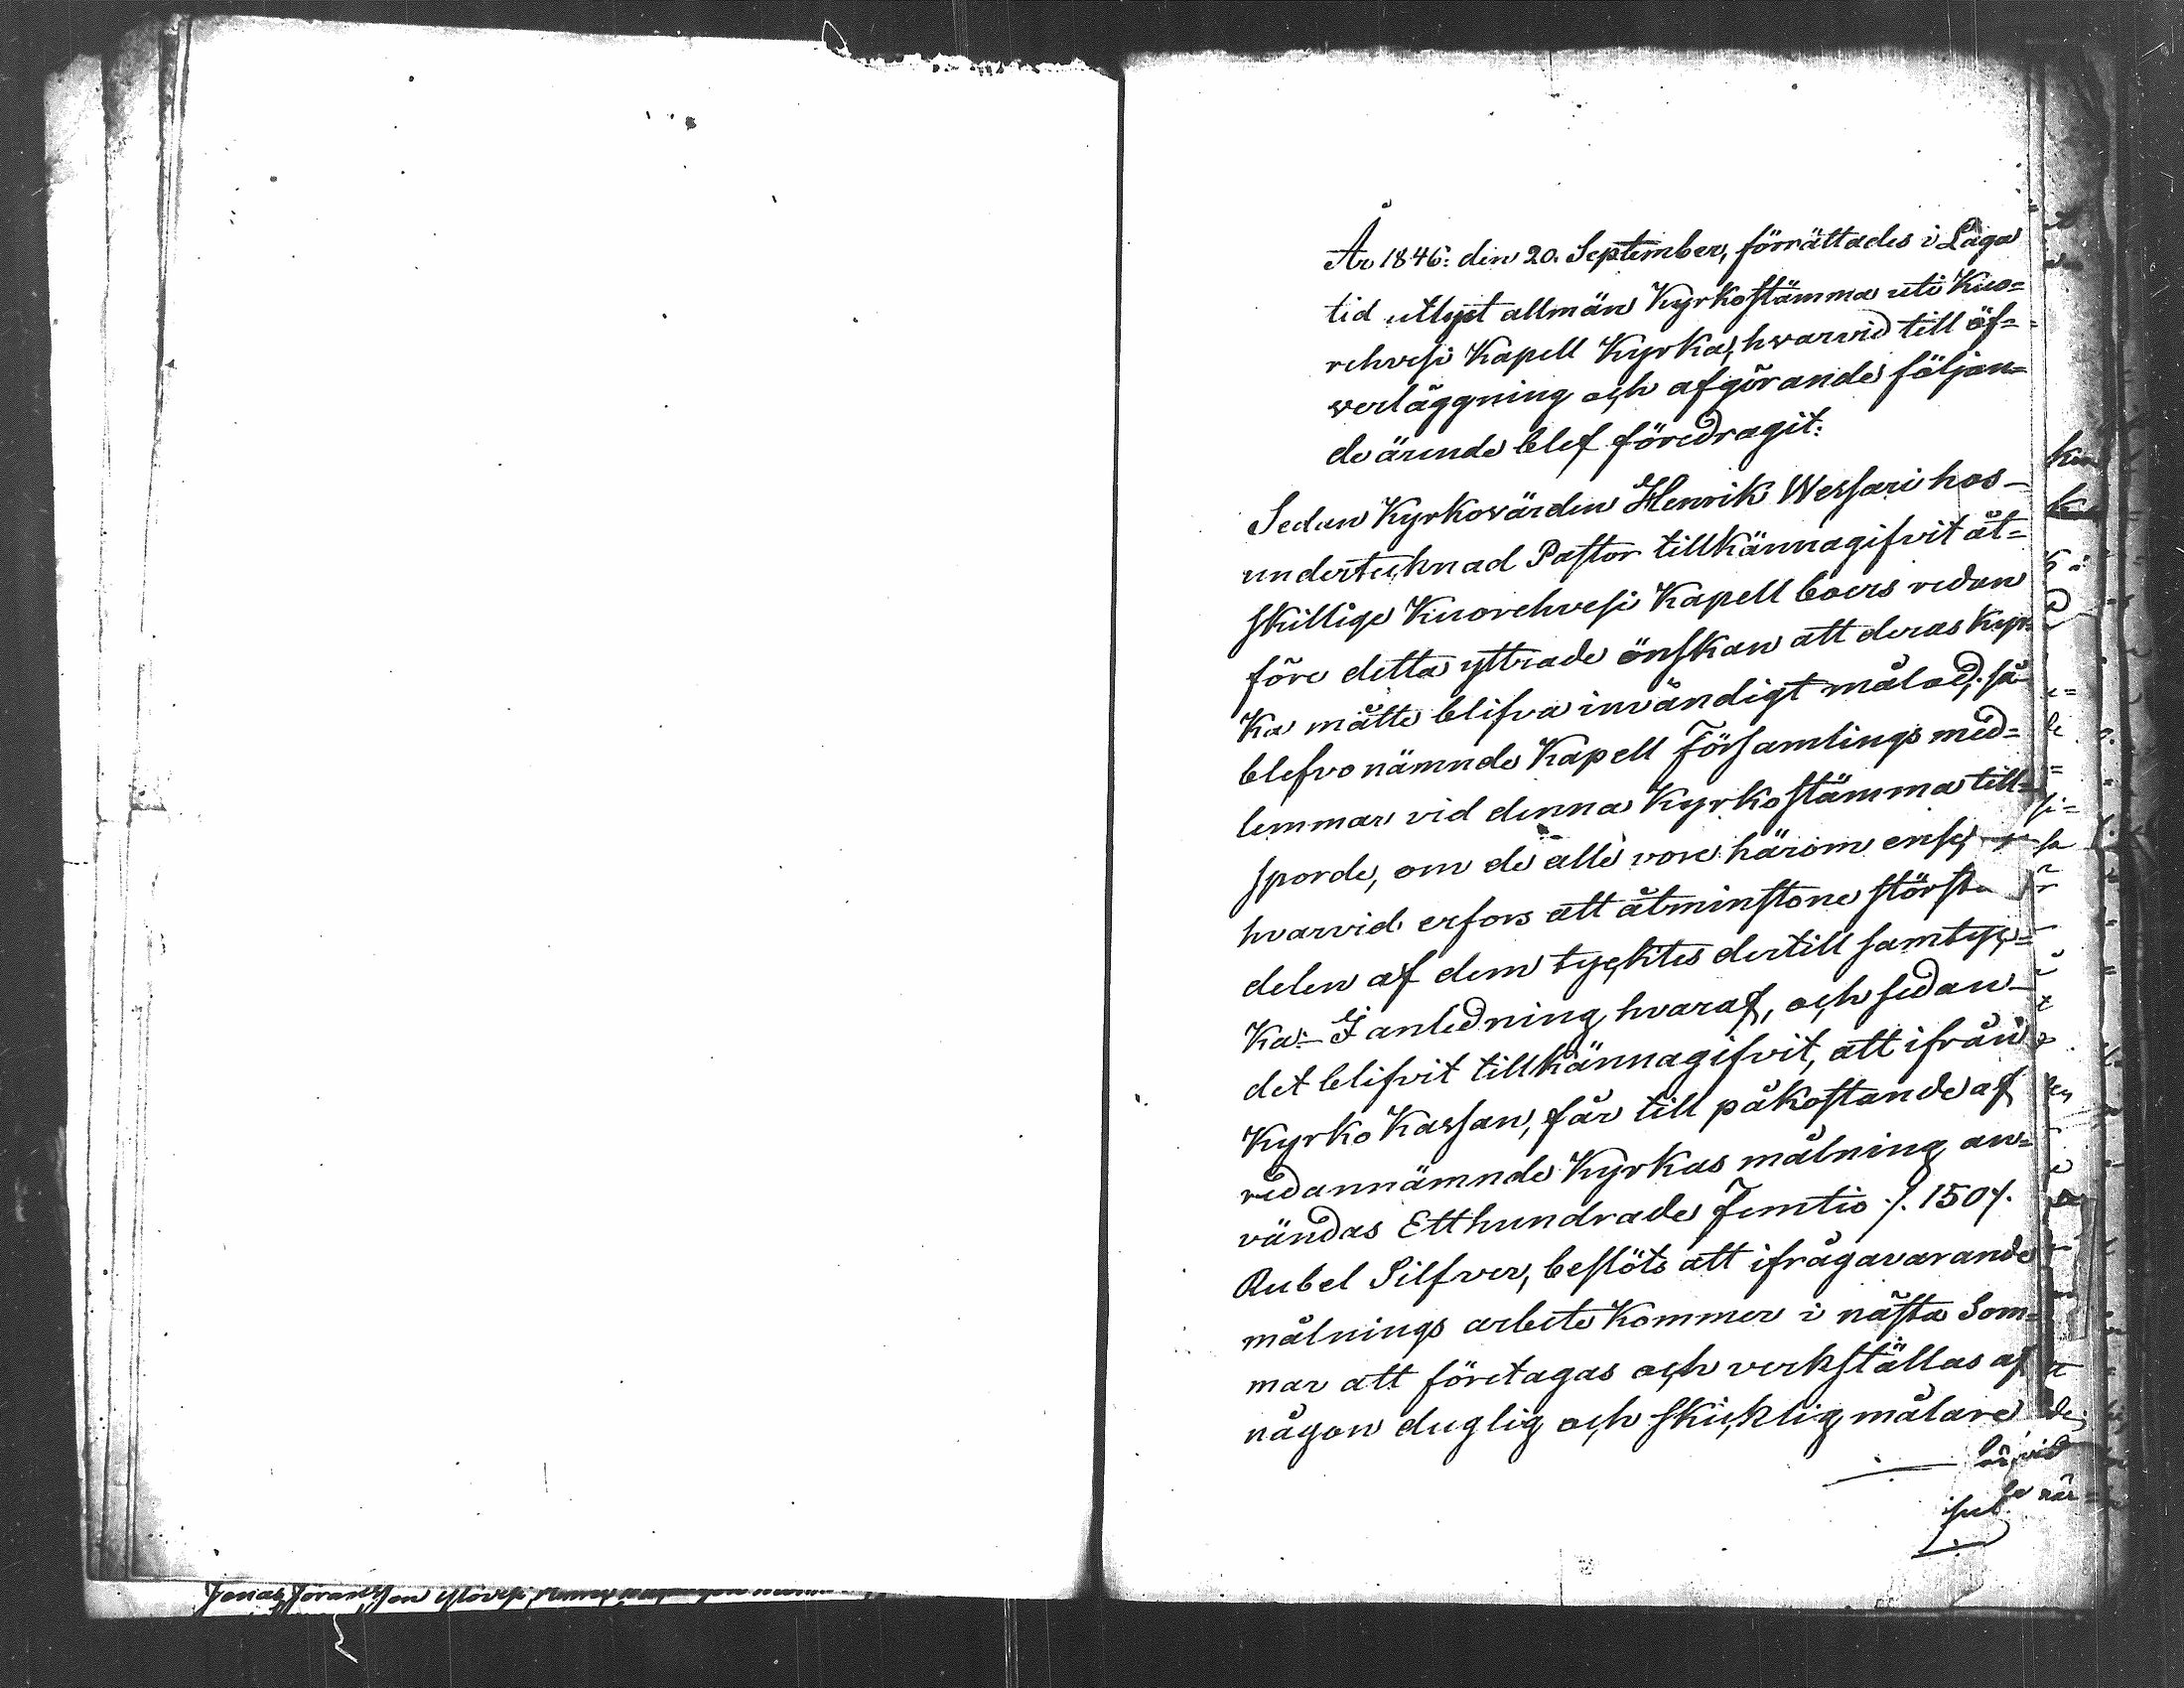 År 1846: den 20. September, förrättades i Laga
tid utlyst allmän Kyrkostämma uti Kuo=
rehvesi Kapell Kyrka, hvarvid till öf=
verläggning och afgörande följan=
de ärende blef föredragit:
Sedan Kyrkovärden Henrik Wessari hos
undertecknad Pastor tillkännagifvit åt=
skillige Kuorehvesi Kapell boers redan
före detta yttrade önskan att deras Kyr=
Ka måtte blifva invändigt målad; så
blefvo nämnde Kapell Församlings med=
lemmar vid denna Kyrkostämma till=
sporde, om de alle vore härom ense,
hvarvid erfors att åtminstone största
delen af dem tycktes dertill samtyc=
Ka:- I anledning hvaraf, och sedan
det blifvit tillkännagifvit, att ifrån
Kyrko Kassan, får till påkostande af
redannämnde Kyrkas målning an=
vändas Etthundrade Femtio /. 150 /.
Rubel Silfver, beslöts att ifrågavarande
målnings arbete Kommer i nästa Som=
mar att företagas och verkställas af
någon duglig och skicklig målare
Jonas Jöransson